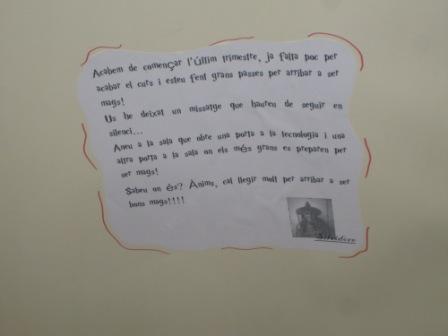 Acabem de començar l'últim trimestre, ja falta poc per
acabar el curs i esteu fent grans passes per arribar a ser
mags!
Us he deixat un missatge que haureu de seguir en
silenci...
Aneu a la sala que obre una porta a la tecnologia i una
altra porta a la sala on els més grans es preparen per
ser mags!
Sabeu on és? Ànims, cal llegir molt per arribar a ser
bons mags!!!!